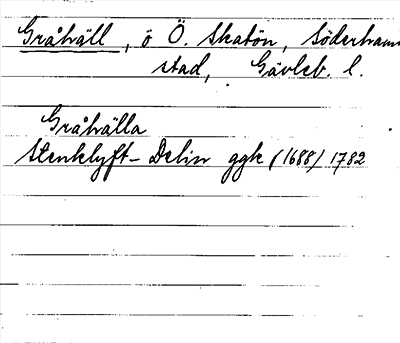 Gråhäll, ö Ö. Skatön, Söderhamns
stad, Gävleb. l.
Gråhälla
Stenklyft-Delin ggk (1688/1782